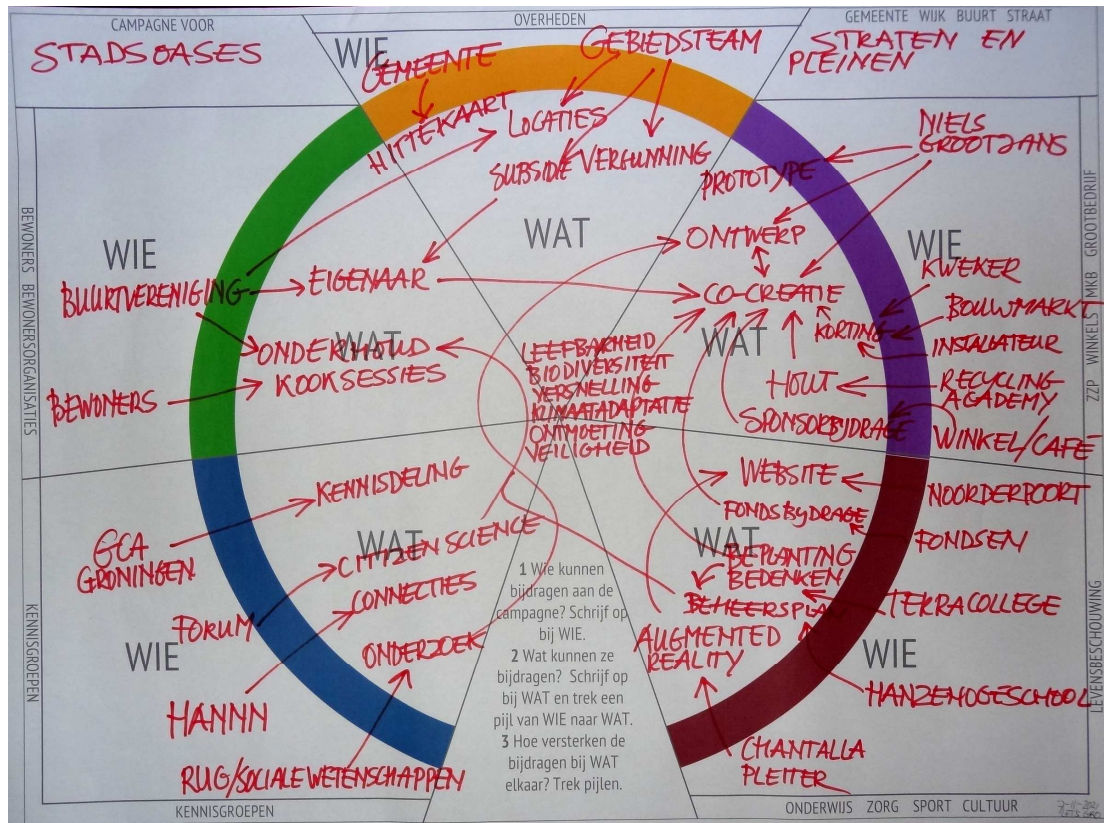 CAMPAGNE VOOR
STADSOASES
OVERHEDEN
GEMEENTE WIJK BUURT STRAAT
STRATEN EN
PLEINEN
WIE
GEMEENTE
GEBIEDSTEAM
HITTEKAART
LOCATIES
SUBSIDIE
VERGUNNING
WAT
NIELS
GROOTJANS
PROTOTYPE
ONTWERP
CO-CREATIE
KORTING
WIE
KWEKER
BOUWMARKT
INSTALLATEUR
WAT
HOUT
RECYCLING
ACADEMY
SPONSORBIJDRAGE
WINKEL/CAFÉ
ZZP WINKELS MKB GROOTBEDRIJF
BEWONERS BEWONERSORGANISATIES
WIE
BUURTVERENIGING
EIGENAAR
WAT
ONDERHOUD
KOOKSESSIES
BEWONERS
LEEFBARHEID
BIODIVERSITEIT
VERSNELLING
KLIMAATADAPTATIE
ONTMOETING
VEILIGHEID
KENNISDELING
GCA
GRONINGEN
WAT
CITIZEN SCIENCE
FORUM
CONNECTIES
WIE
ONDERZOEK
HANNN
RUG/SOCIALE WETENSCHAPPEN
KENNISGROEPEN
KENNISGROEPEN
1 Wie kunnen
bijdragen aan de
campagne? Schrijf op
bij WIE.
2 Wat kunnen ze
bijdragen? Schrijf op
bij WAT en trek een
pijl van WIE naar WAT.
3 Hoe versterken de
bijdragen bij WAT
elkaar? Trek pijlen.
WEBSITE
NOORDERPOORT
FONDSBIJDRAGE
FONDSEN
WAT
BEPLANTING
BEDENKEN
BEHEERSPLAN
TERRACOLLEGE
AUGMENTED
REALITY
WIE
HANZEHOGESCHOOL
CHANTALLA
PLEITER
LEVENSBESCHOUWING
ONDERWIJS ZORG SPORT CULTUUR